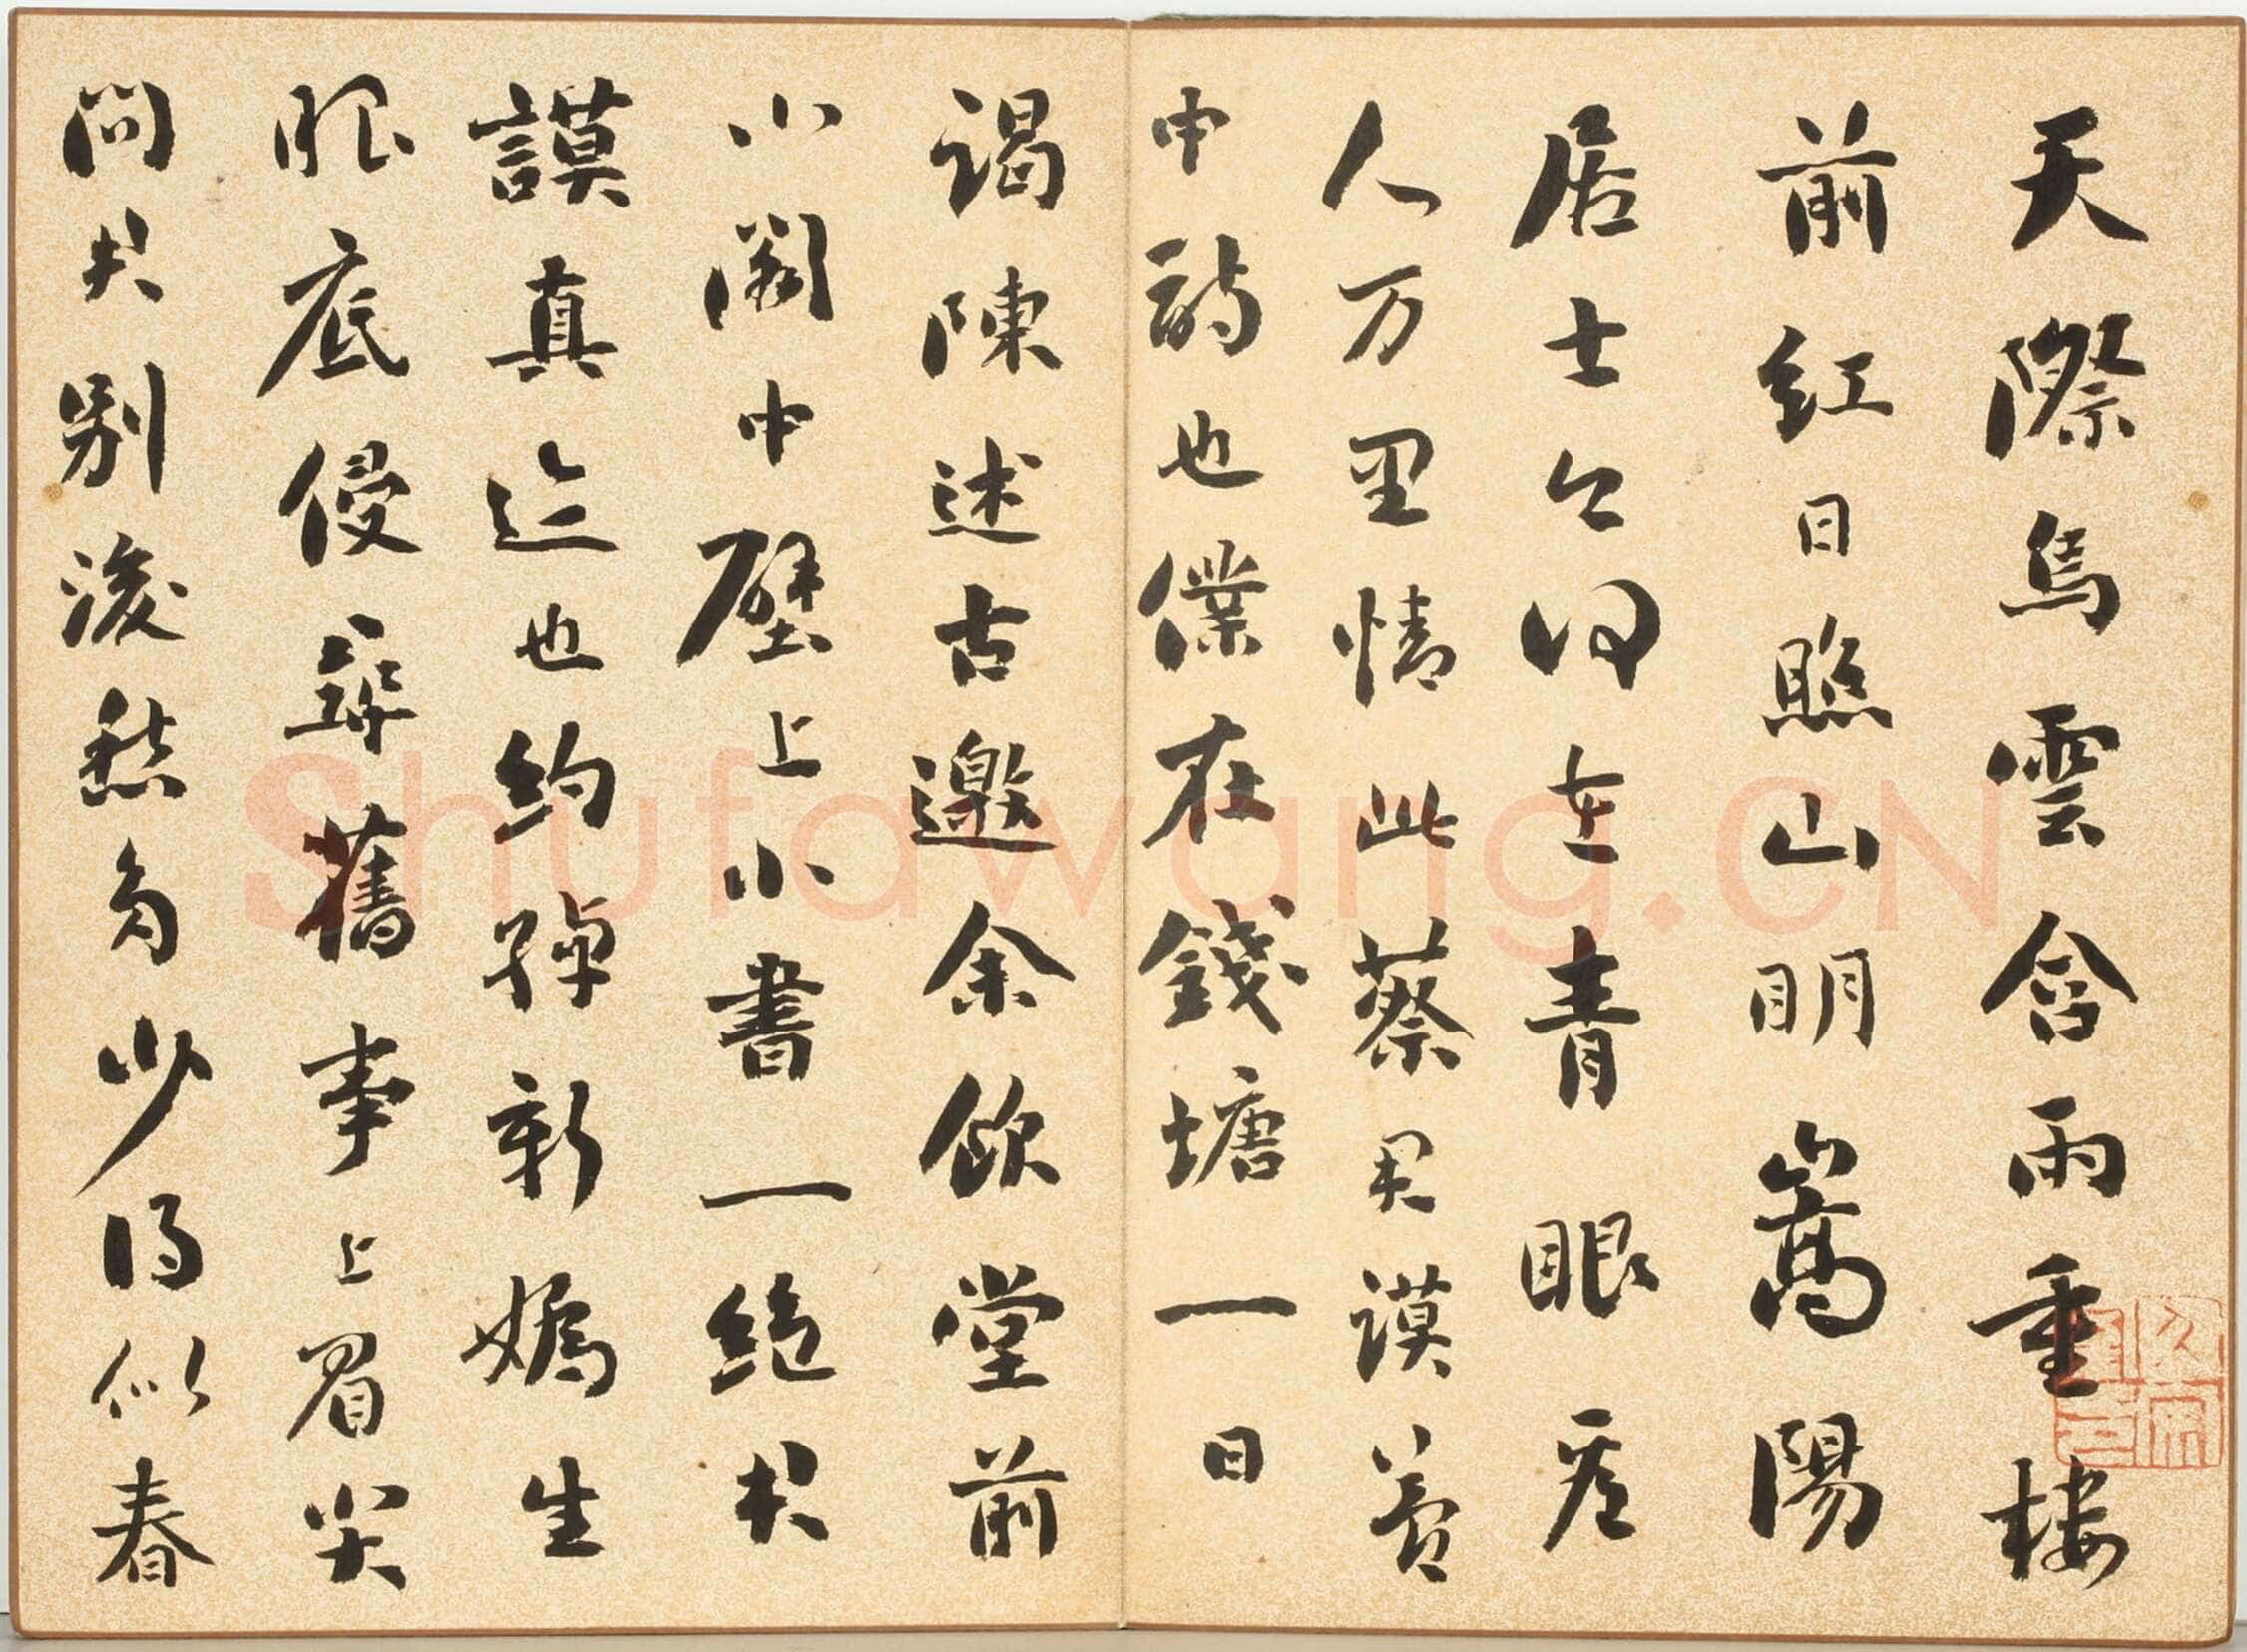 天際烏雲含雨重樓
前紅日照山明嵩陽
居士今何在青眼看
人万里情此蔡君謨夢
中詩也僕在錢塘一日
謁陳述古邀余飲堂前
小閣中壁上小書一絕君
謨真迹也約綽新嬌生
眼底侵尋舊事上眉尖
問君別後愁多少得似春
Shufawang.CN